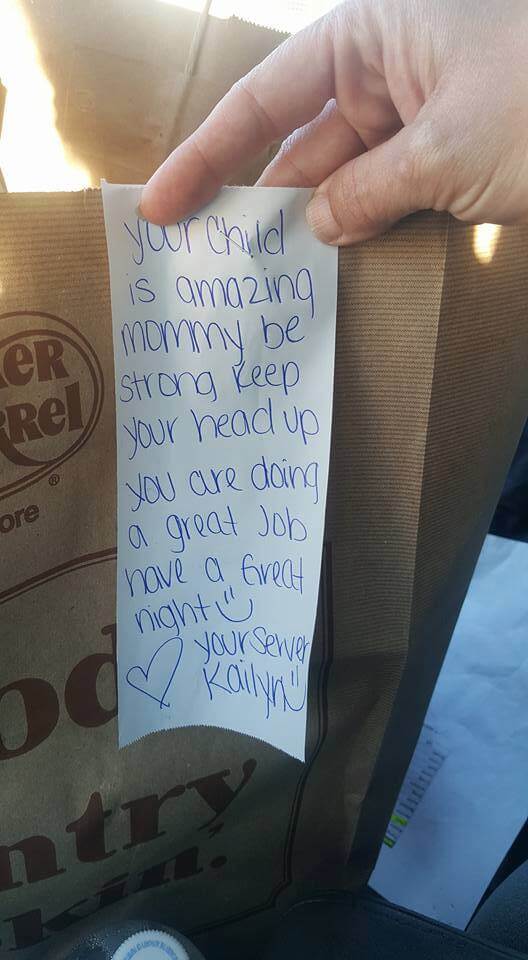 your child
is amazing
mommy be
strong keep
your head up
you are doing
a great Job
have a Great
night
your server
Kailyn
er
rrel
®
ore
od
ntry
kin.